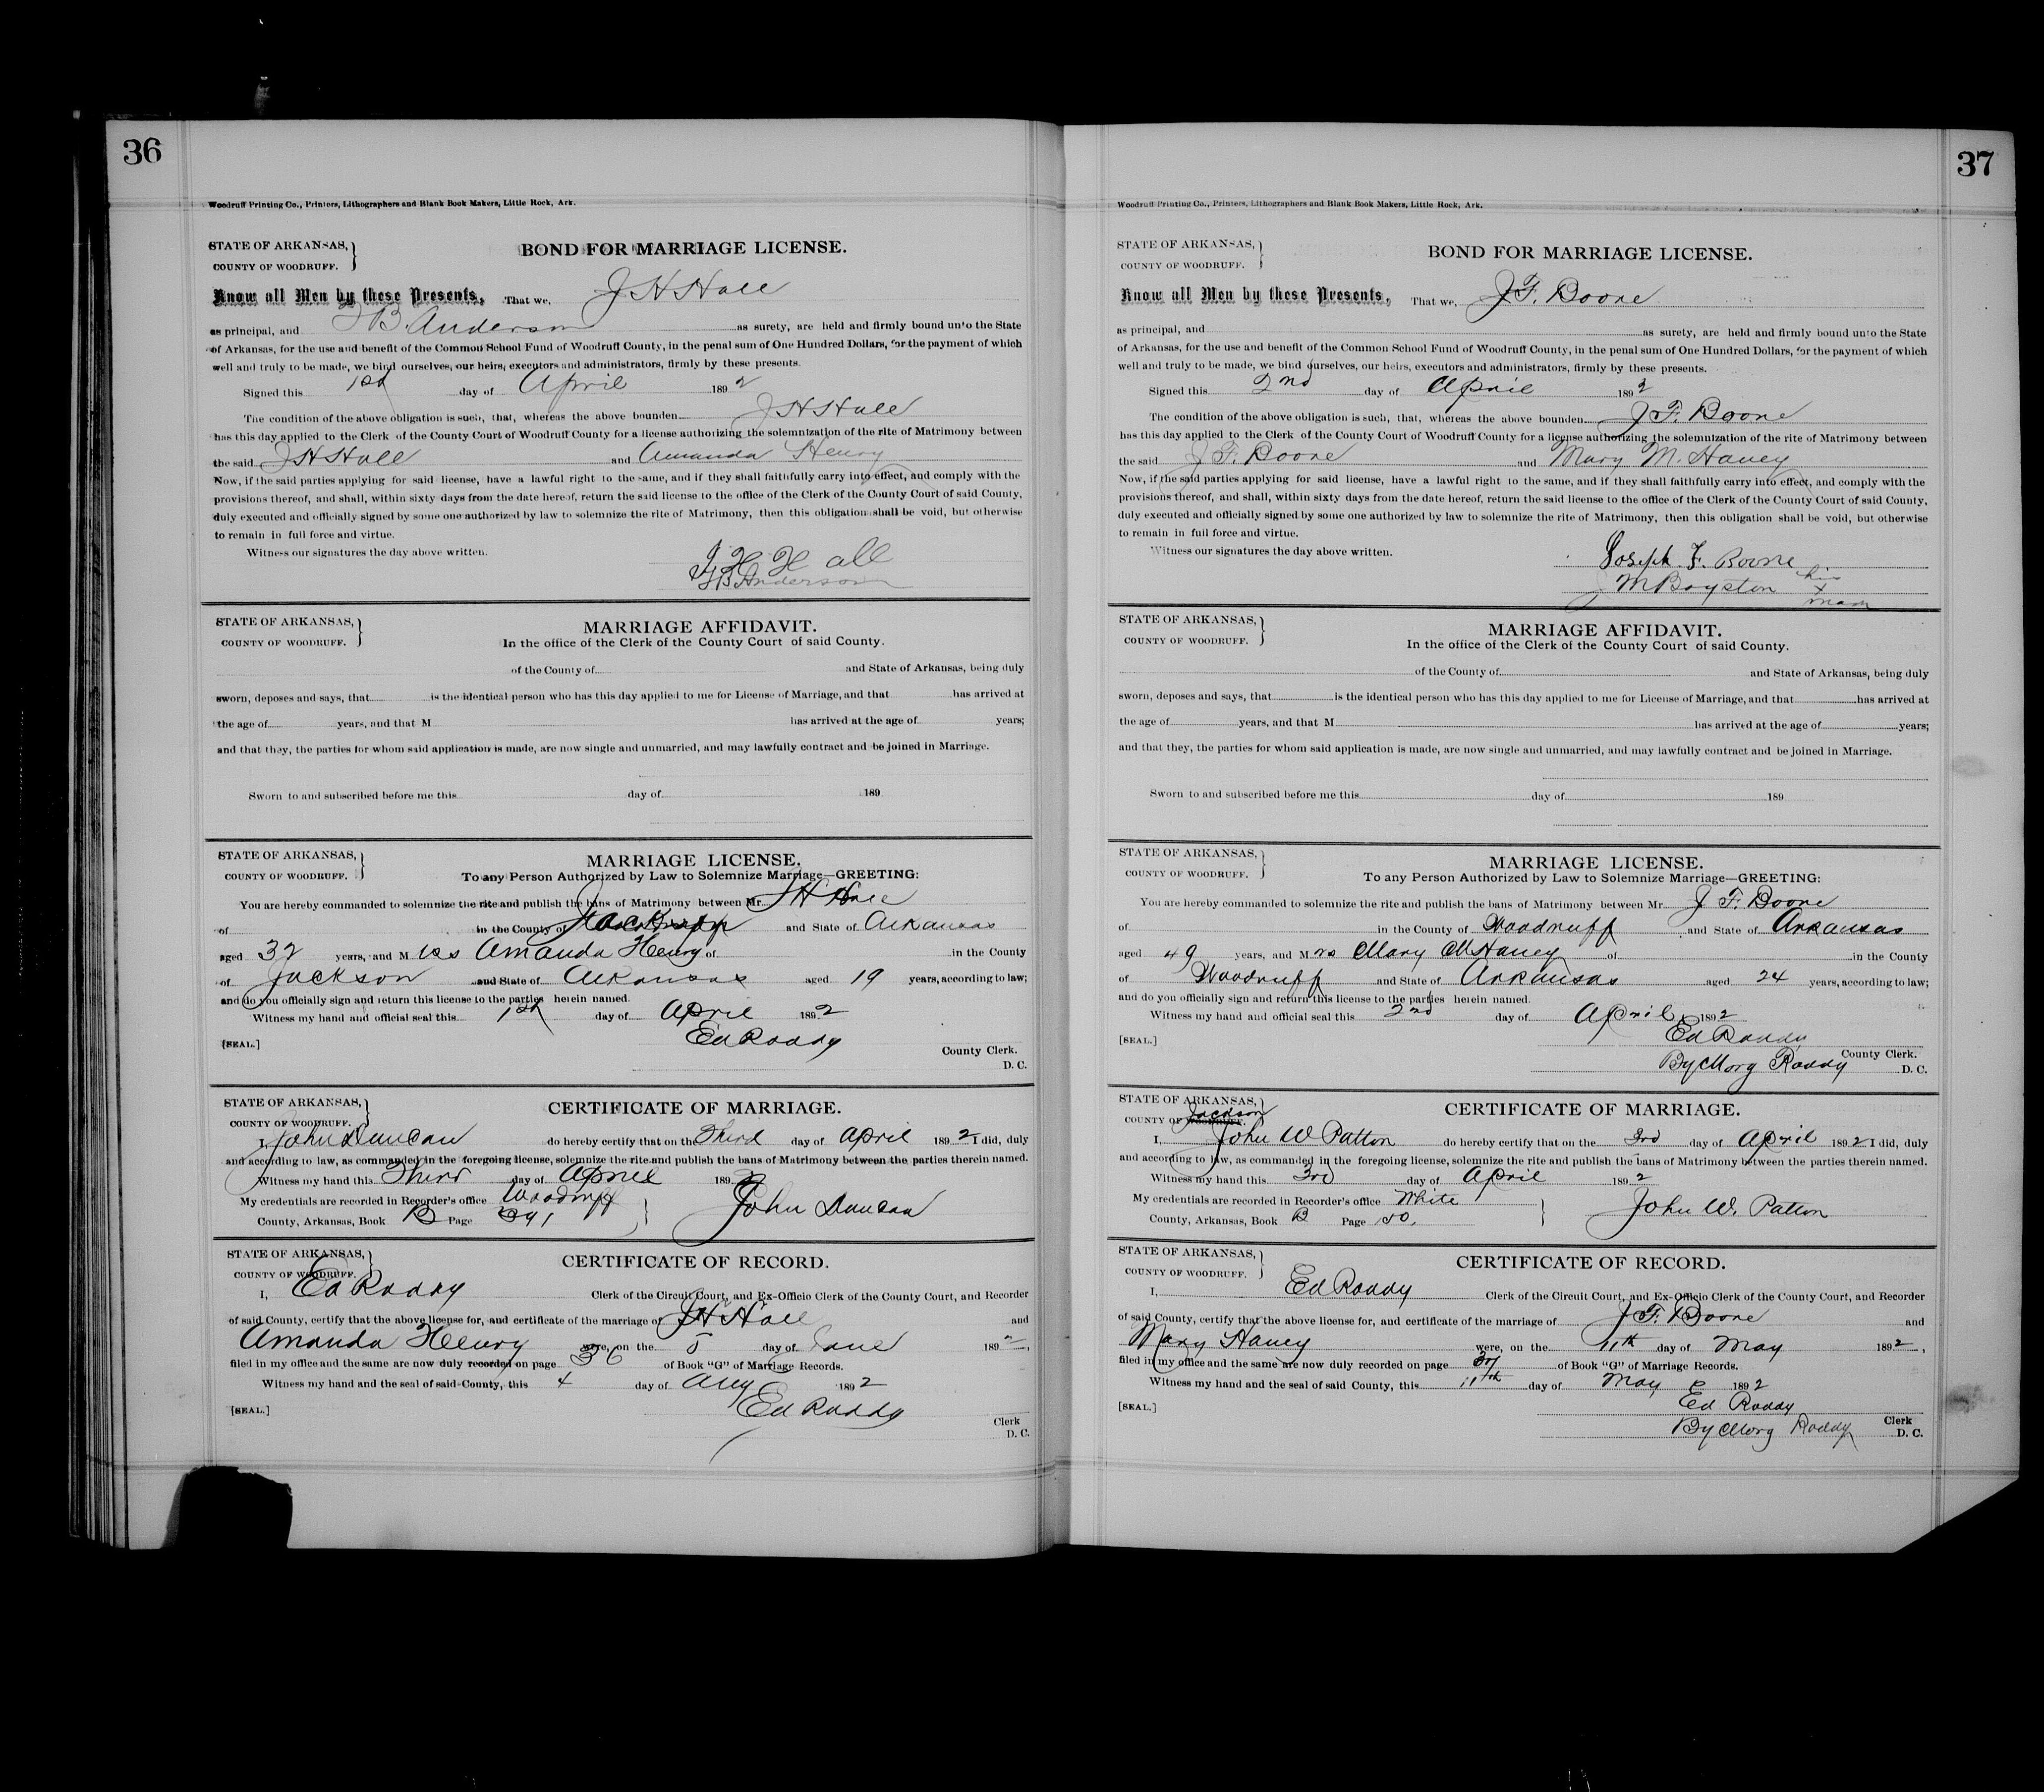 36
Woodruff Printing Co., Printers, Lithographers and Blank Book Makers, Little Rock, Ark.
STATE OF ARKANSAS,
COUNTY OF WOODRUFF.
BOND FOR MARRIAGE LICENSE.
Know all Men by these Presents, That we, J H Hall
as principal, and B. Anderson as surety, are held and firmly bound unto the State
of Arkansas, for the use and benefit of the Common School Fund of Woodruff County, in the penal sum of One Hundred Dollars, for the payment of which
well and truly to be made, we bind ourselves, our heirs, executors and administrators, firmly by these presents.
Signed this 1st day of April 1892
The condition of the above obligation is such, that, whereas the above bounden J H Hall
has this day applied to the Clerk of the County Court of Woodruff County for a license authorizing the solemnization of the rite of Matrimony between
the said J H Hall and Amanda Henry
Now, if the said parties applying for said license, have a lawful right to the same, and if they shall faithfully carry into effect, and comply with the
provisions thereof, and shall, within sixty days from the date hereof, return the said license to the office of the Clerk of the County Court of said County,
duly executed and officially signed by some one authorized by law to solemnize the rite of Matrimony, then this obligation shall be void, but otherwise
to remain in full force and virtue.
Witness our signatures the day above written.
J H Hall
B Anderson
STATE OF ARKANSAS,
COUNTY OF WOODRUFF.
MARRIAGE AFFIDAVIT.
In the office of the Clerk of the County Court of said County.
of the County of and State of Arkansas, being duly
sworn, deposes and says, that is the identical person who has this day applied to me for License of Marriage, and that has arrived at
the age of years, and that M has arrived at the age of years;
and that they, the parties for whom said application is made, are now single and unmarried, and may lawfully contract and be joined in Marriage.
Sworn to and subscribed before me this day of 189
STATE OF ARKANSAS,
COUNTY OF WOODRUFF.
MARRIAGE LICENSE.
To any Person Authorized by Law to Solemnize Marriage—GREETING:
You are hereby commanded to solemnize the rite and publish the bans of Matrimony between Mr. J H Hall
of in the County of Jackson and State of Arkansas
aged 32 years, and Miss Amanda Henry of in the County
of Jackson and State of Arkansas aged 19 years, according to law;
and do you officially sign and return this license to the parties herein named.
Witness my hand and official seal this 1st day of April 1892
[SEAL.] Ed Roddy
County Clerk.
D. C.
STATE OF ARKANSAS,
COUNTY OF WOODRUFF.
CERTIFICATE OF MARRIAGE.
I, John Duncan do hereby certify that on the Third day of April 1892 I did, duly
and according to law, as commanded in the foregoing license, solemnize the rite and publish the bans of Matrimony between the parties therein named.
Witness my hand this Third day of April 1892
My credentials are recorded in Recorder's office Woodruff
County, Arkansas, Book B Page 
John Duncan
STATE OF ARKANSAS,
COUNTY OF WOODRUFF.
CERTIFICATE OF RECORD.
I, Ed Roddy Clerk of the Circuit Court, and Ex-Officio Clerk of the County Court, and Recorder
of said County, certify that the above license for, and certificate of the marriage of J H Hall and
Amanda Henry were, on the 5 day of June 1892,
filed in my office and the same are now duly recorded on page 36 of Book "G" of Marriage Records.
Witness my hand and the seal of said County, this 4 day of Aug 1892
[SEAL.] Ed Roddy
Clerk
D. C.
37
Woodruff Printing Co., Printers, Lithographers and Blank Book Makers, Little Rock, Ark.
STATE OF ARKANSAS,
COUNTY OF WOODRUFF.
BOND FOR MARRIAGE LICENSE.
Know all Men by these Presents, That we, J. F. Boone
as principal, and as surety, are held and firmly bound unto the State
of Arkansas, for the use and benefit of the Common School Fund of Woodruff County, in the penal sum of One Hundred Dollars, for the payment of which
well and truly to be made, we bind ourselves, our heirs, executors and administrators, firmly by these presents.
Signed this 2nd day of April 1892
The condition of the above obligation is such, that, whereas the above bounden J. F. Boone
has this day applied to the Clerk of the County Court of Woodruff County for a license authorizing the solemnization of the rite of Matrimony between
the said J. F. Boone and Mary M. Haney
Now, if the said parties applying for said license, have a lawful right to the same, and if they shall faithfully carry into effect, and comply with the
provisions thereof, and shall, within sixty days from the date hereof, return the said license to the office of the Clerk of the County Court of said County,
duly executed and officially signed by some one authorized by law to solemnize the rite of Matrimony, then this obligation shall be void, but otherwise
to remain in full force and virtue.
Witness our signatures the day above written.
Joseph F. Boone
J M Boyston his x mark
STATE OF ARKANSAS,
COUNTY OF WOODRUFF.
MARRIAGE AFFIDAVIT.
In the office of the Clerk of the County Court of said County.
of the County of and State of Arkansas, being duly
sworn, deposes and says, that is the identical person who has this day applied to me for License of Marriage, and that has arrived at
the age of years, and that M has arrived at the age of years;
and that they, the parties for whom said application is made, are now single and unmarried, and may lawfully contract and be joined in Marriage.
Sworn to and subscribed before me this day of 189
STATE OF ARKANSAS,
COUNTY OF WOODRUFF.
MARRIAGE LICENSE.
To any Person Authorized by Law to Solemnize Marriage—GREETING:
You are hereby commanded to solemnize the rite and publish the bans of Matrimony between Mr. J F. Boone
of in the County of Woodruff and State of Arkansas
aged 49 years, and Mrs Mary M Haney of in the County
of Woodruff and State of Arkansas aged 24 years, according to law;
and do you officially sign and return this license to the parties herein named.
Witness my hand and official seal this 2nd day of April 1892
[SEAL.] Ed Roddy
County Clerk.
By Morg Roddy D. C.
STATE OF ARKANSAS,
COUNTY OF WOODRUFF. Jackson
CERTIFICATE OF MARRIAGE.
I, John W Patton do hereby certify that on the 3rd day of April 1892 I did, duly
and according to law, as commanded in the foregoing license, solemnize the rite and publish the bans of Matrimony between the parties therein named.
Witness my hand this 3rd day of April 1892
My credentials are recorded in Recorder's office White
County, Arkansas, Book B Page 50.
John W. Patton
STATE OF ARKANSAS,
COUNTY OF WOODRUFF.
CERTIFICATE OF RECORD.
I, Ed Roddy Clerk of the Circuit Court, and Ex-Officio Clerk of the County Court, and Recorder
of said County, certify that the above license for, and certificate of the marriage of J. F. Boone and
Mary Haney were, on the 11th day of May 1892,
filed in my office and the same are now duly recorded on page 37 of Book "G" of Marriage Records.
Witness my hand and the seal of said County, this 11th day of May 1892
[SEAL.] Ed Roddy
Clerk
By Morg Roddy D. C.